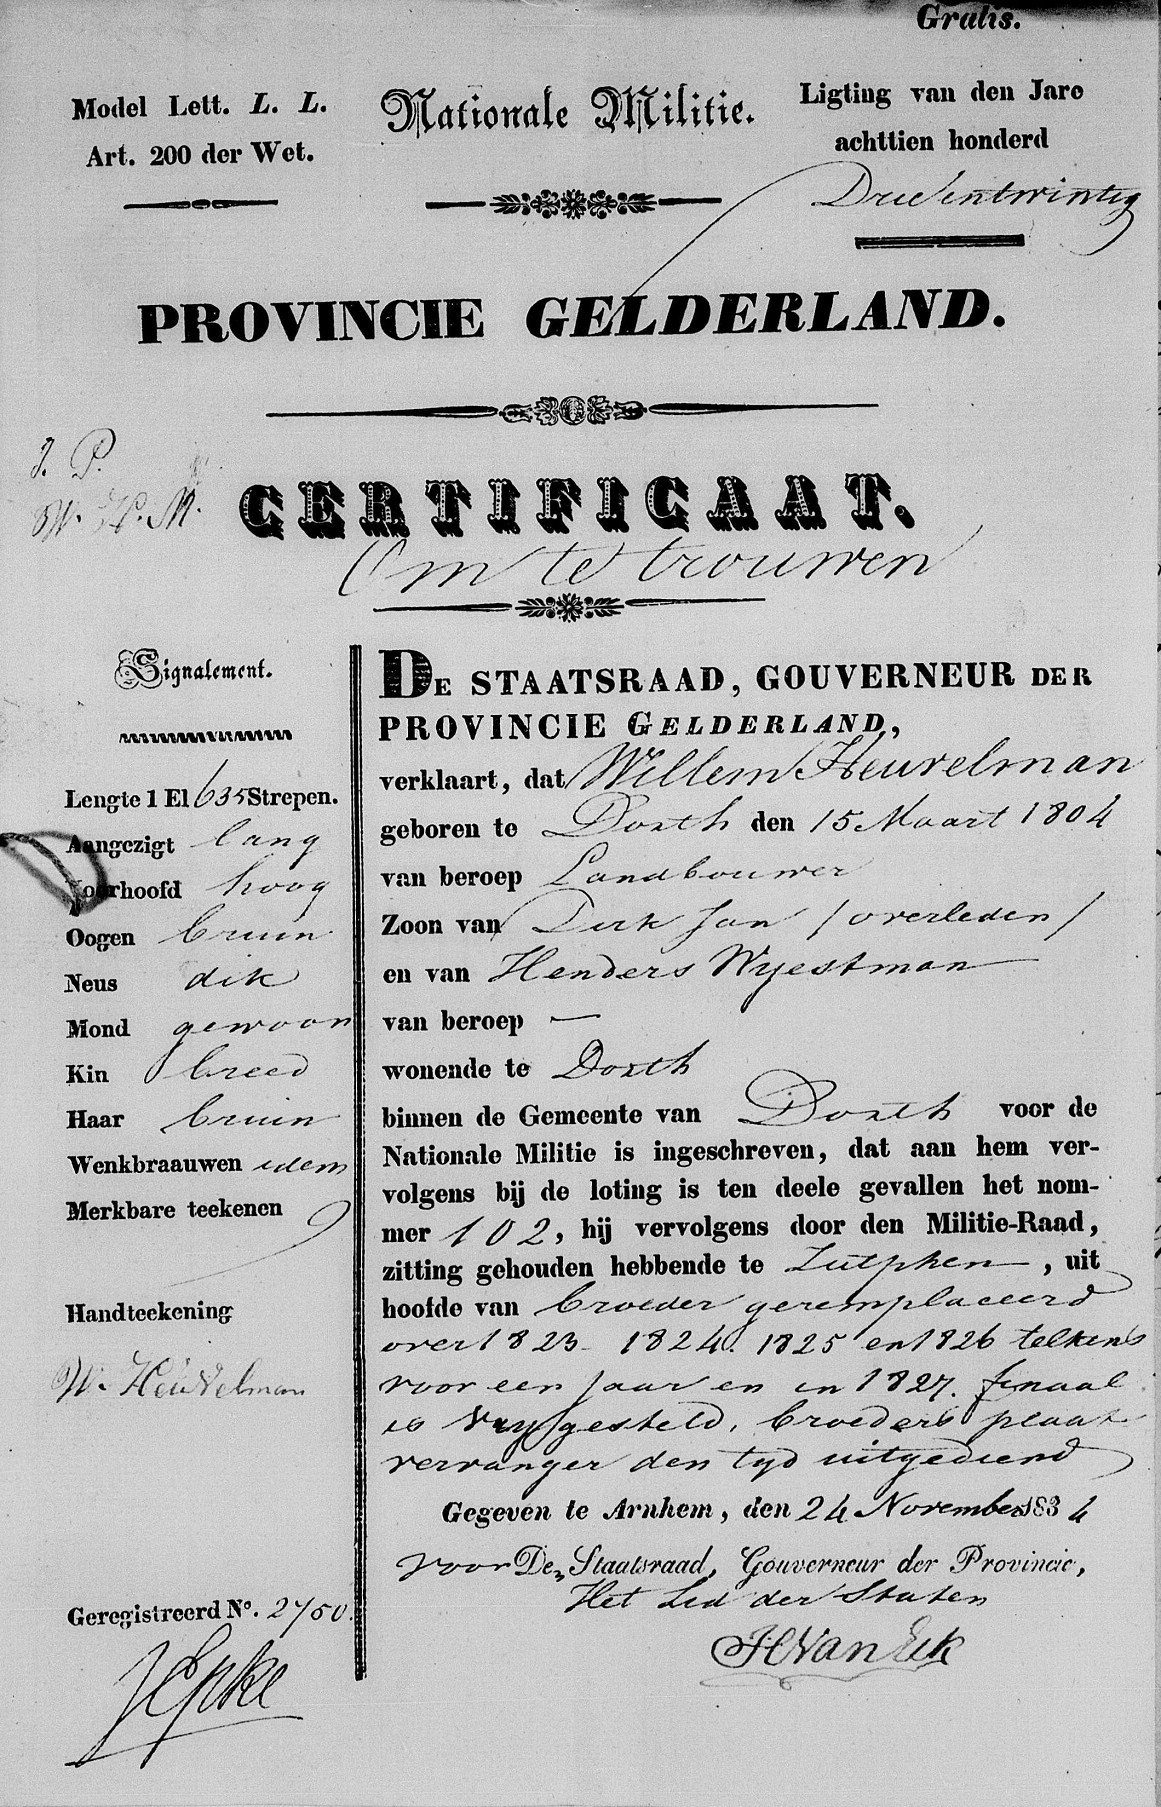 Gratis.
Model Lett. L. L.
Art. 200 der Wet.
Nationale Militie.
Ligting van den Jare
achttien honderd
Drie entwintig
PROVINCIE GELDERLAND.
J. P.
W. H. M.
CERTIFICAAT.
Om te trouwen
Signalement.
Lengte 1 El 635 Strepen.
Aangezigt lang
Voorhoofd hoog
Oogen bruin
Neus dik
Mond gewoon
Kin breed
Haar bruin
Wenkbraauwen idem
Merkbare teekenen
Handteekening
W. Heuvelman
Geregistreerd No. 2750.
DE STAATSRAAD, GOUVERNEUR DER
PROVINCIE GELDERLAND,
verklaart, dat Willem Heuvelman
geboren te Dorth den 15 Maart 1804
van beroep Landbouwer
Zoon van Derk Jan / overleden /
en van Henders Wyestman
van beroep —
wonende te Dorth
binnen de Gemeente van Dorth voor de
Nationale Militie is ingeschreven, dat aan hem ver-
volgens bij de loting is ten deele gevallen het nom-
mer 102, hij vervolgens door den Militie-Raad,
zitting gehouden hebbende te Zutphen, uit
hoofde van broeder geremplaceerd
over 1823. 1824. 1825 en 1826 telkens
voor een jaar en in 1827. finaal
is vrygesteld, broeders plaats
vervanger den tyd uitgediend
Gegeven te Arnhem, den 24 November 1834
voor De Staatsraad, Gouverneur der Provincie,
Het Lid der Staten
HVan Eck